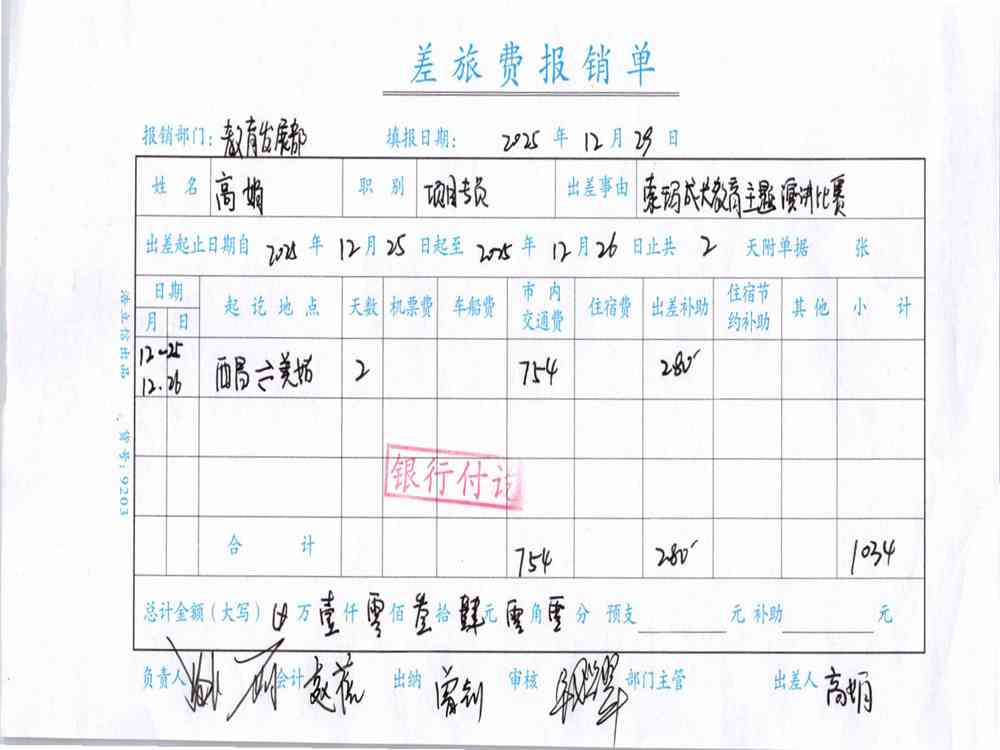 差旅费报销单
报销部门：教育发展部 填报日期： 2025 年 12 月 29 日
姓名 高娟 职别 项目专员 出差事由 索玛成大教育主题演讲比赛
出差起止日期自 2025 年 12 月 25 日起至 2025 年 12 月 26 日止共 2 天附单据 张
日期 起讫地点 天数 机票费 车船费 市内交通费 住宿费 出差补助 住宿节约补助 其他 小计
月 日
12-25
12.26 西昌⇌美姑 2 754 280
银行付讫
合计 754 280 1034
总计金额（大写） 万 壹 仟 零 佰 叁 拾 肆 元 零 角 零 分 预支 元 补助 元
负责人 会计 赵蓓 出纳 曾剑 审核 部门主管 出差人 高娟
货号：9203